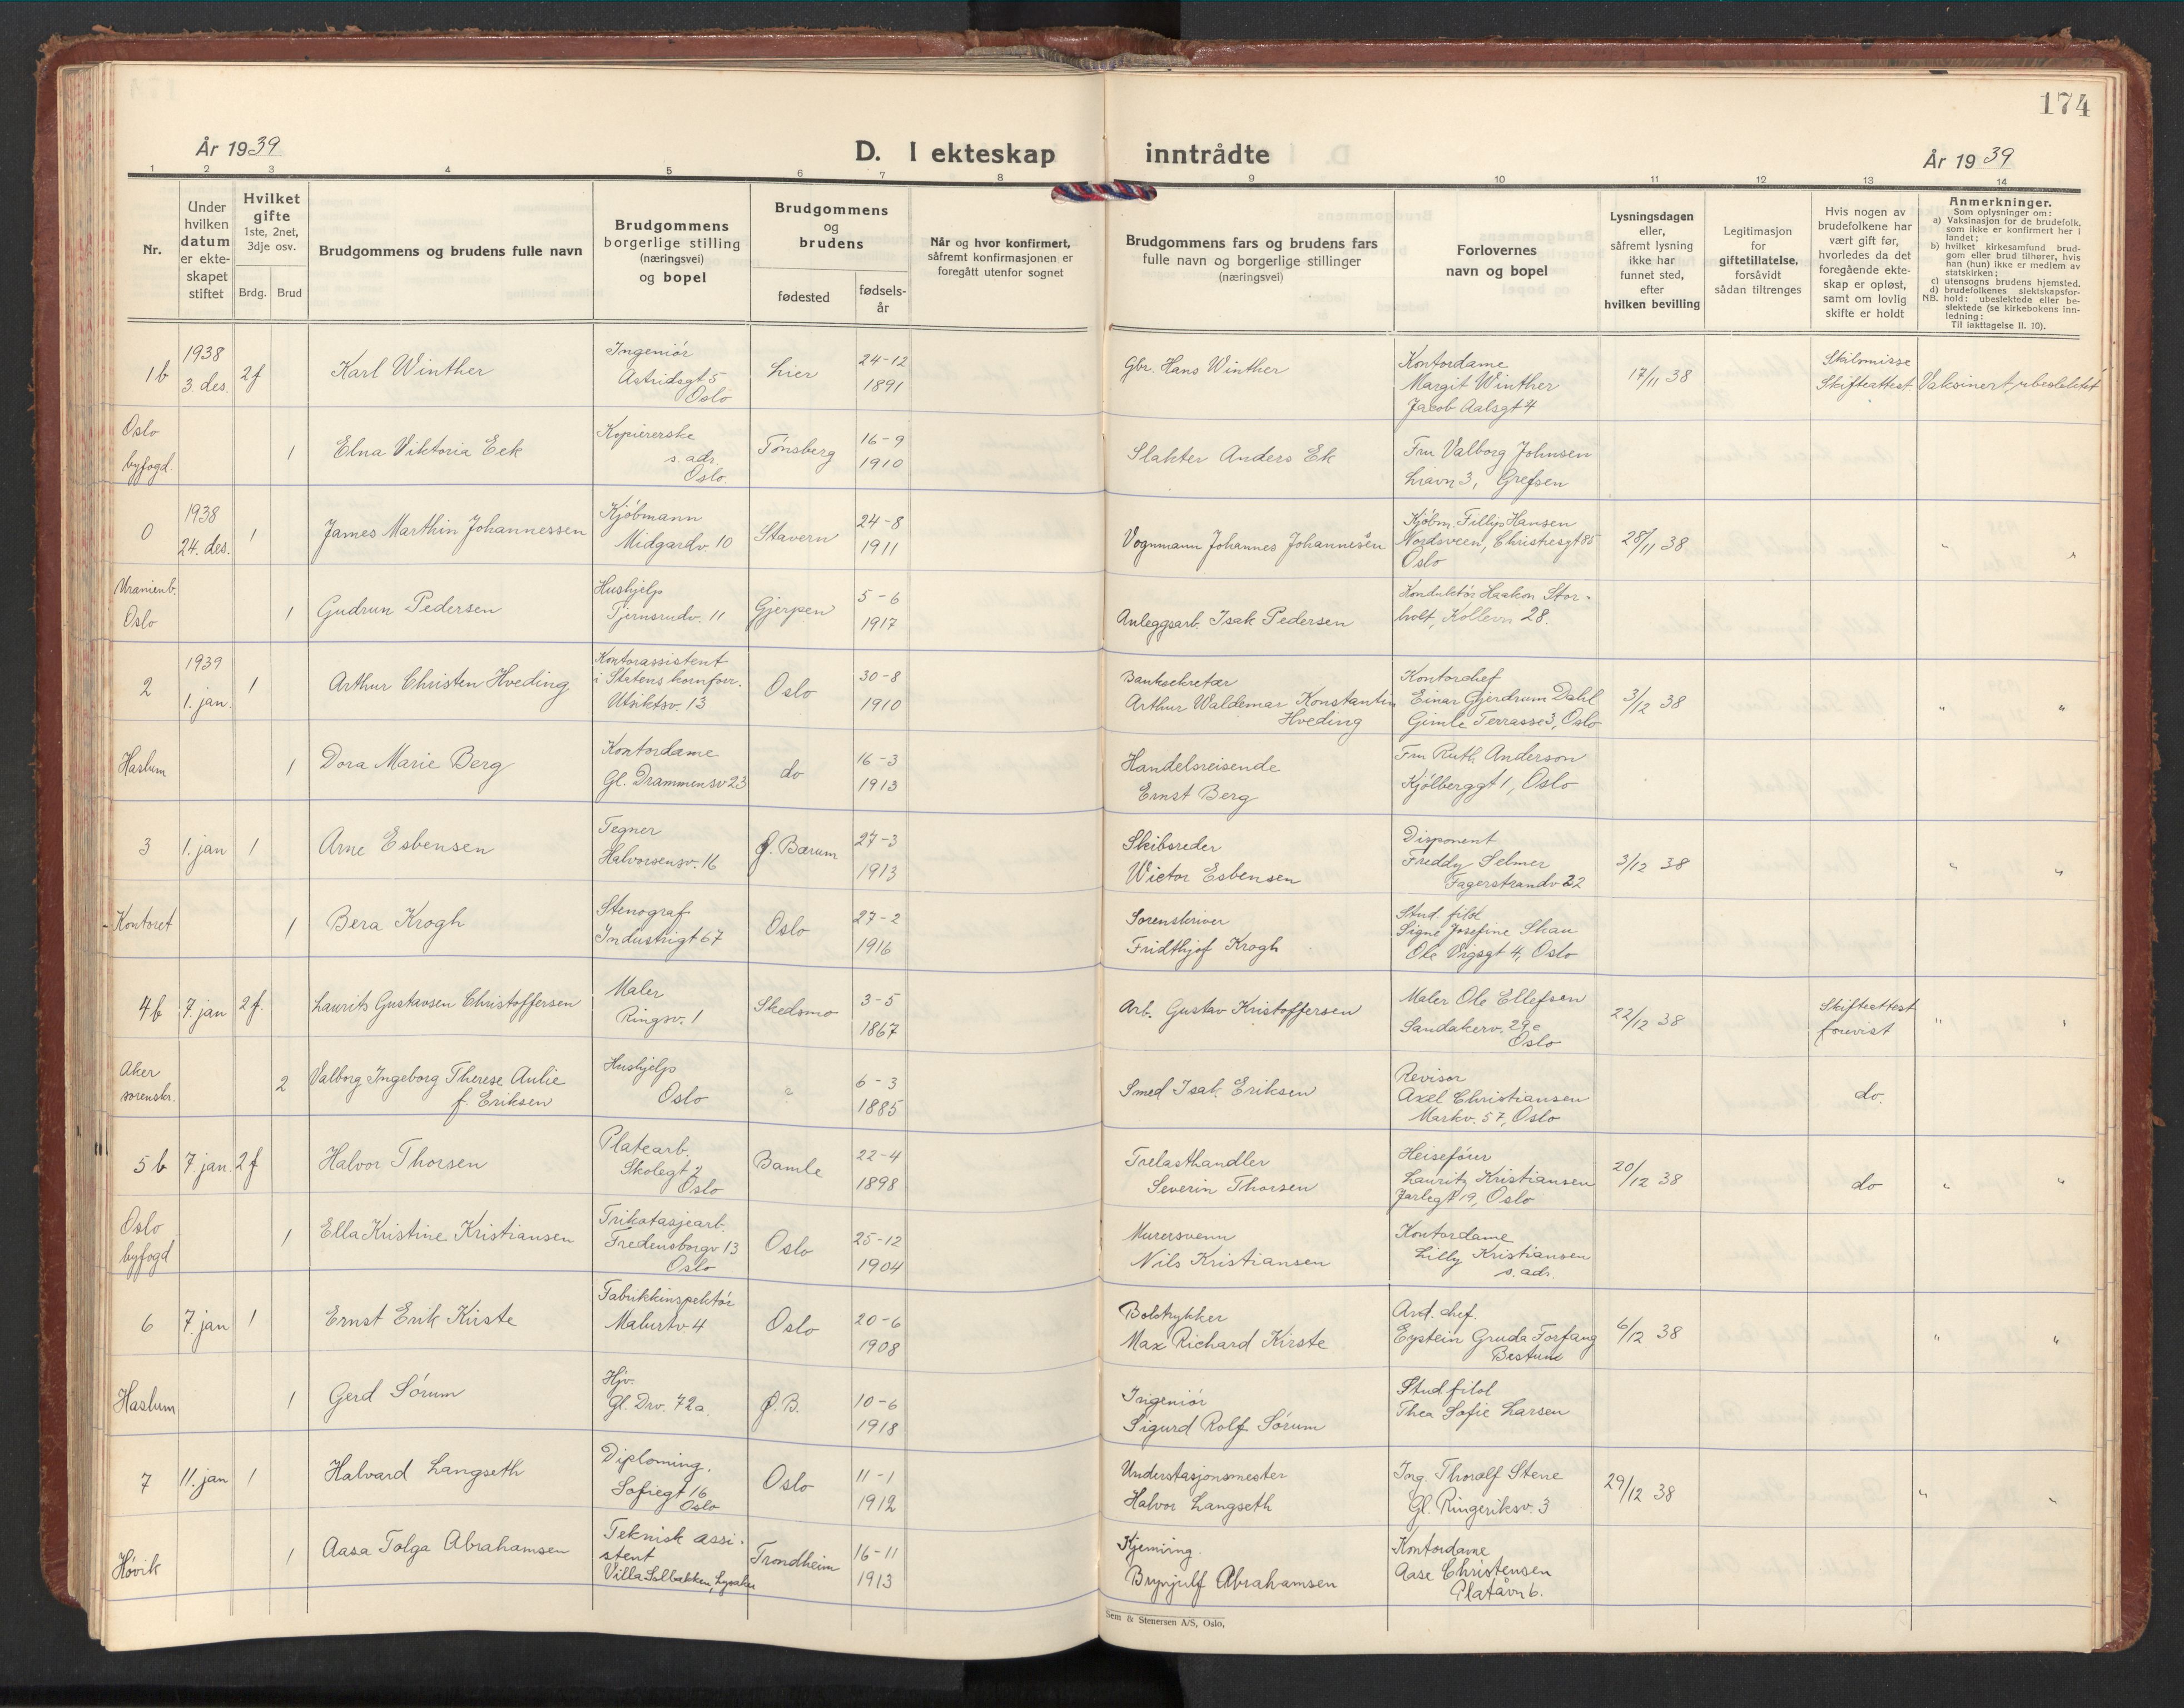 174
År 1939
D. I ekteskap inntrådte
År 1939
1 2 3 4 5 6 7 8 9 10 11 12 13 14
Nr.
Under hvilken datum er ekteskapet stiftet
Hvilket gifte 1ste, 2net, 3dje osv.
Brdg. Brud
Brudgommens og brudens fulle navn
Brudgommens borgerlige stilling (næringsvei) og bopel
Brudgommens og brudens
fødested
fødselsår
Når og hvor konfirmert, såfremt konfirmasjonen er foregått utenfor sognet
Brudgommens fars og brudens fars fulle navn og borgerlige stillinger (næringsvei)
Forlovernes navn og bopel
Lysningsdagen eller, såfremt lysning ikke har funnet sted, efter hvilken bevilling
Legitimasjon for giftetillatelse, forsåvidt sådan tiltrenges
Hvis nogen av brudefolkene har vært gift før, hvorledes da det foregående ekteskap er opløst, samt om lovlig skifte er holdt
Anmerkninger.
Som oplysninger om:
a) Vaksinasjon for de brudefolk, som ikke er konfirmert her i landet;
b) hvilket kirkesamfund brudgom eller brud tilhører, hvis han (hun) ikke er medlem av statskirken;
c) utensogns brudens hjemsted.
d) brudefolkenes slektskapsforhold: ubeslektede eller beslektede (se kirkebokens innledning:
NB.
Til iakttagelse II. 10).
1b 1938 3 des. 2f Karl Winther Ingeniør Astridsgt 5 Oslo Lier 24-12 1891 Gbr. Hans Winther Kontordame Margit Winther Jacob Aalsgt 4 17/11 38 Skilsmisse Skifteattest Vaksinert, ubeslektet
Oslo byfogd. 1 Elna Viktoria Eek Kopiererske s. adr. Oslo. Tønsberg 16-9 1910 Slakter Anders Ek Fru Valborg Johnsen Liavn 3, Grefsen
0 1938 24. des. 1 James Marthin Johannessen Kjøbmann Midgardv. 10 Stavern 24-8 1911 Vognmann Johannes Johannesen Kjøbm. Fillip Hansen Nordsveen, Christiesgt 85 Oslo 28/11 38 " "
Uranienb. Oslo 1 Gudrun Pedersen Hushjelp Tjernsrudv. 11 Gjerpen 5-6 1917 Anleggsarb. Isak Pedersen Konduktør Haakon Storholt, Kollevn 28.
2 1939 1. jan. 1 Arthur Christen Hveding Kontorassistent i Statens kornforr. Utsiktsv. 13 Oslo 30-8 1910 Banksekretær Arthur Waldemar Konstantin Hveding Kontorchef Einar Gjerdrum Dahl Gimle Terrasse 3, Oslo 3/12 38 " "
Haslum 1 Dora Marie Berg Kontordame Gl. Drammensv 23 do 16-3 1913 Handelsreisende Ernst Berg Fru Ruth Anderson Kjølberggt 1, Oslo
3 1. jan 1 Arne Esbensen Tegner Halvorsensv. 16 Ø. Bærum 27-3 1913 Skibsreder Wictor Esbensen Disponent Freddy Selmer Fagerstrandv 22 3/12 38 " "
Kontoret 1 Bera Krogh Stenograf Industrigt 67 Oslo 27-2 1916 Sorenskriver Fridthjof Krogh Stud. filol Signe Josefine Skau Ole Vigsgt 4, Oslo
4b 7. jan 2f. Laurits Gustavsen Christoffersen Maler Ringsv. 1 Skedsmo 3-5 1867 Arb. Gustav Kristoffersen Maler Ole Ellefsen Sandakerv. 29c Oslo 22/12 38 Skifteattest forevist " "
Aker sorenskr. 2 Valborg Ingeborg Therese Aulie f. Eriksen Hushjelp Oslo ? 6-3 1885 Smed Isak Eriksen Revisor Axel Christiansen Markv. 57, Oslo do.
5b 7. jan. 2f Halvor Thorsen Platearb. Skolegt 2 Oslo Bamle 22-4 1898 Trelasthandler Severin Thorsen Heisefører Lauritz Kristiansen Jarlegt 19, Oslo 20/12 38 do " "
Oslo byfogd 1 Ella Kristine Kristiansen Trikotasjearb. Fredensborgv 13 Oslo Oslo 25-12 1904 Murersvenn Nils Kristiansen Kontordame Lilly Kristiansen s. adr.
6 7. jan 1 Ernst Erik Kirste Fabrikkinspektør Malurtv 4 Oslo 20-6 1908 Boktrykker Max Richard Kirste Avd. chef. Eystein Gruda Forfang Bestum 6/12 38 " "
Haslum 1 Gerd Sørum Hjv. Gl. Drv. 72a. Ø.B. 10-6 1918 Ingeniør Sigurd Rolf Sørum Stud filol Thea Sofie Larsen
7 11. jan 1 Halvard Langseth Diploming. Sofiegt 16 Oslo Oslo 11-1 1912 Understasjonsmester Halvor Langseth Ing. Thoralf Stene Gl. Ringeriksv. 3 29/12 38 " "
Høvik 1 Aasa Tolga Abrahamsen Teknisk assistent Villa Solbakken, Lysaker Trondheim 16-11 1913 Kjeming. Brynjulf Abrahamsen Kontordame Aase Christensen Platåvn 6.
Sem & Stenersen A/S, Oslo,